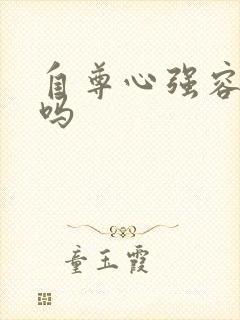 自尊心强容
吗
童玉霞